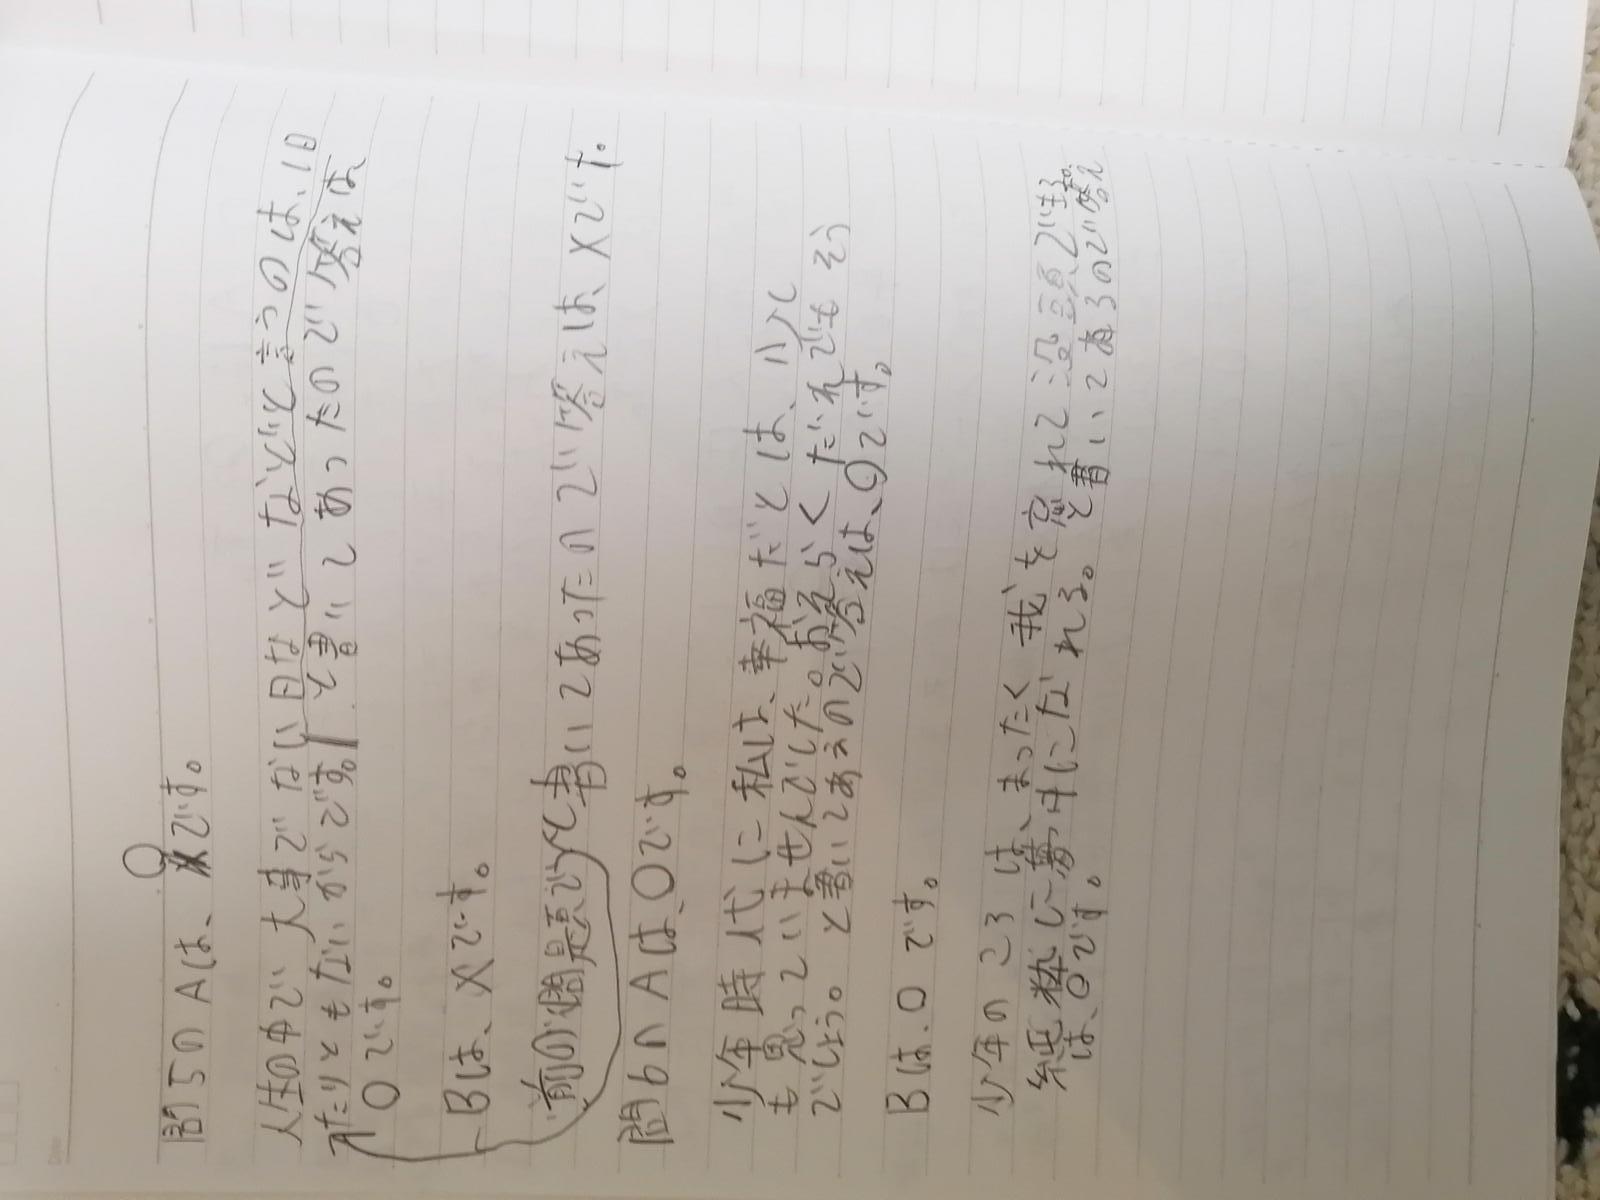 問5のAは、○です。
人生の中で大事でない日などなどと言うのは、1日
たりともないからです。と書いてあったので答えは
○です。
Bは、×です。
前の問題でと書いてあったので答えは、×です。
問6のAは、○です。
少年時代に私は、幸福だとは、少し
も思っていませんでした。おそらくだれでもそう
でしょう。と書いてあるので答えは、○です。
Bは、○です。
少年のころは、まったく我を忘れて没頭できる。
純粋に夢中になれる。と書いてあるので答え
は、○です。